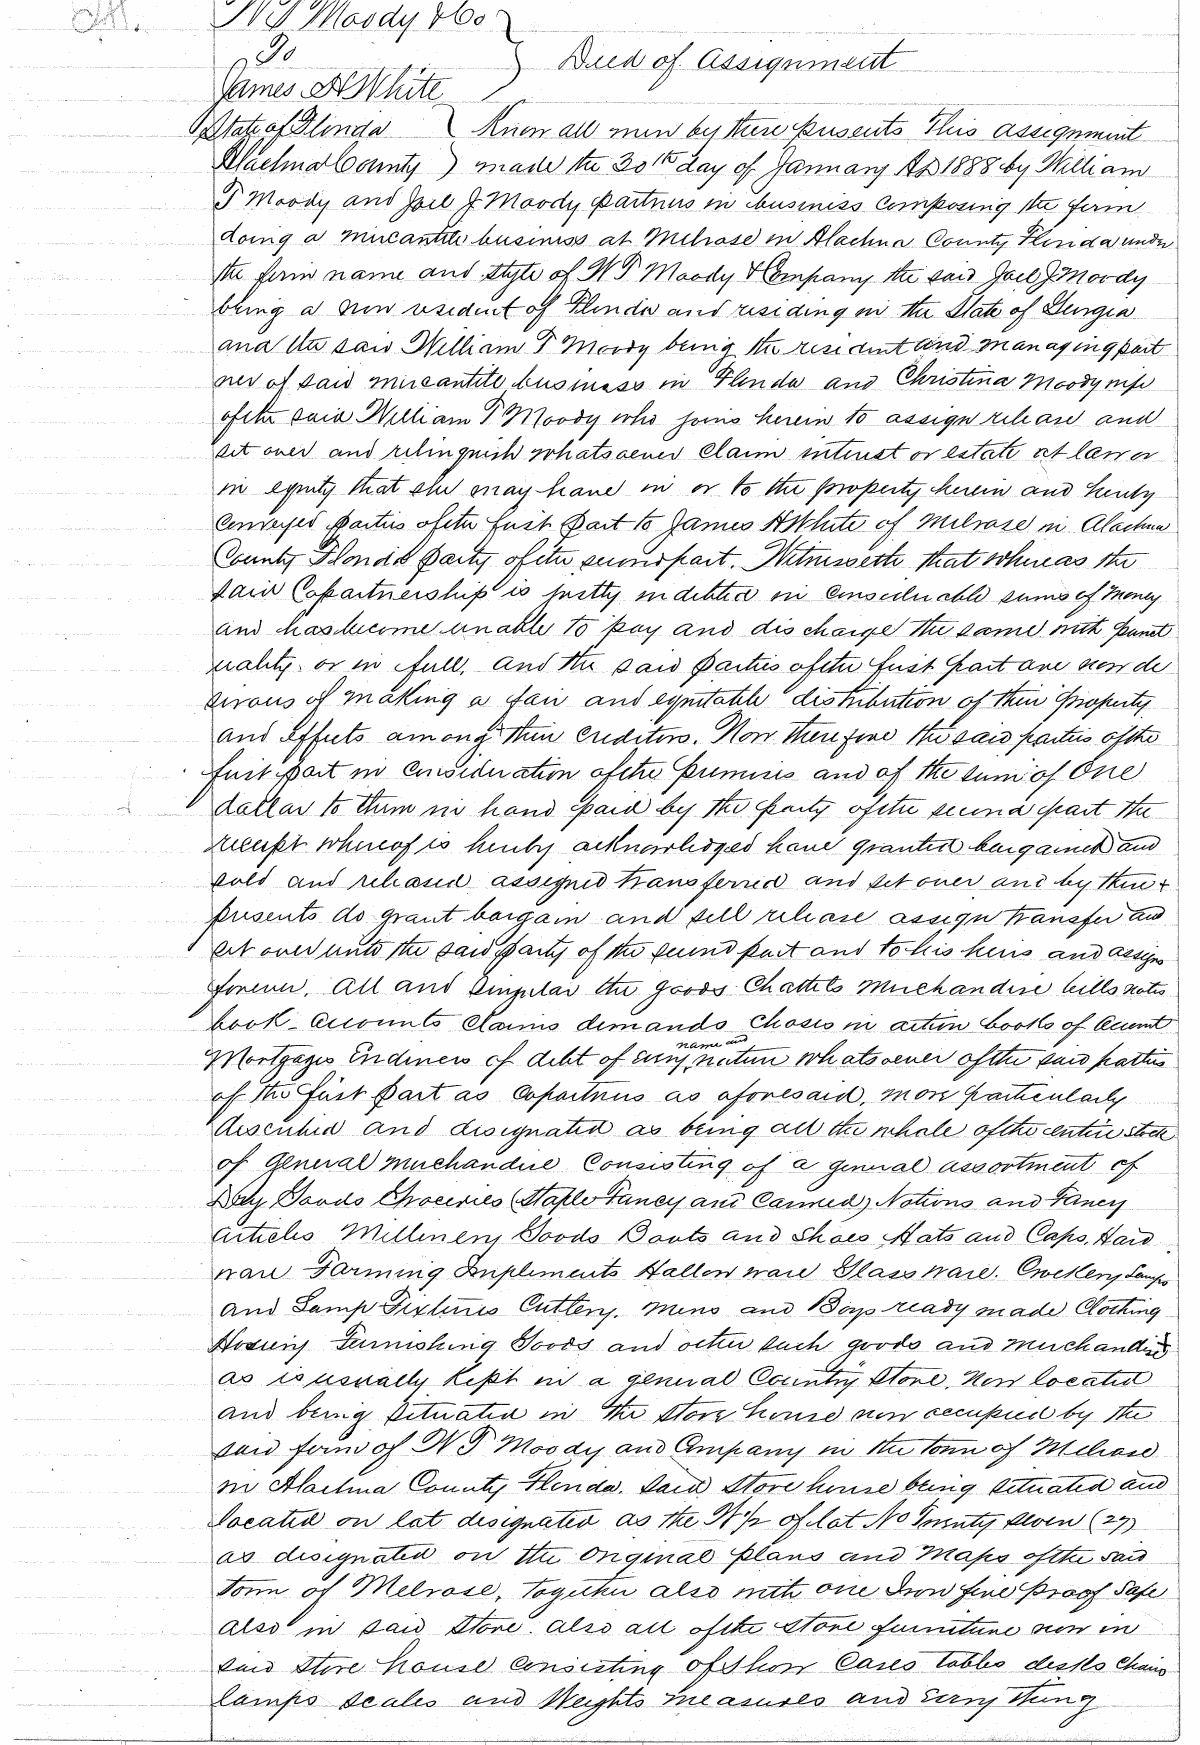 W T Moody & Co
To
Deed of Assignment
James A White
State of Florida } Know all men by these presents This assignment
Alachua County } made the 30th day of January AD 1888 by William
T Moody and Joel J Moody partners in business composing the firm
doing a mercantile business at Melrose in Alachua County Florida under
the firm name and style of W T Moody & Company the said Joel J Moody
being a non resident of Florida and residing in the State of Georgia
and the said William T Moody being the resident and managing part
ner of said mercantile business in Florida and Christina Moody wife
of the said William T Moody who joins herein to assign release and
set over and relinquish whatsoever claim interest or estate at law or
in equity that she may have in or to the property herein and hereby
conveyed parties of the first part to James A White of Melrose in Alachua
County Florida party of the second part. Witnesseth that whereas the
said Copartnership is justly indebted in considerable sums of money
and has become unable to pay and discharge the same with punct
uality or in full. And the said parties of the first part are now de
sirous of making a fair and equitable distribution of their property
and effects among their creditors. Now therefore the said parties of the
first part in consideration of the premises and of the sum of One
dollar to them in hand paid by the party of the second part the
receipt whereof is hereby acknowledged have granted bargained and
sold and released assigned transferred and set over and by these
presents do grant bargain and sell release assign transfer and
set over unto the said party of the second part and to his heirs and assigns
forever. All and singular the goods Chattels merchandise bills notes
book-accounts claims demands choses in action books of account
name and
Mortgages Endiners of debt of every nature whatsoever of the said parties
of the first part as copartners as aforesaid, more particularly
described and designated as being all the whole of the entire stock
of general merchandise consisting of a general assortment of
Dry Goods Groceries (Staple Fancy and Canned) Notions and Fancy
articles Millinery Goods Boots and Shoes, Hats and Caps, Hard
ware Farming Implements Hallow ware Glass ware. Crockery Lamps
and Lamp Fixtures Cutlery. Mens and Boys ready made Clothing
Hosiery Furnishing Goods and other such goods and merchandise
as is usually kept in a general Country Store. Now located
and being situated in the store house now occupied by the
said firm of W T Moody and Company in the town of Melrose
in Alachua County Florida. Said store house being situated and
located on lot designated as the W ½ of lot No Twenty seven (27)
as designated on the original plans and maps of the said
town of Melrose, together also with one Iron fire proof safe
also in said store. also all of the store furniture now in
said store house consisting of Show Cases tables desks chairs
lamps scales and Weights measures and every thing